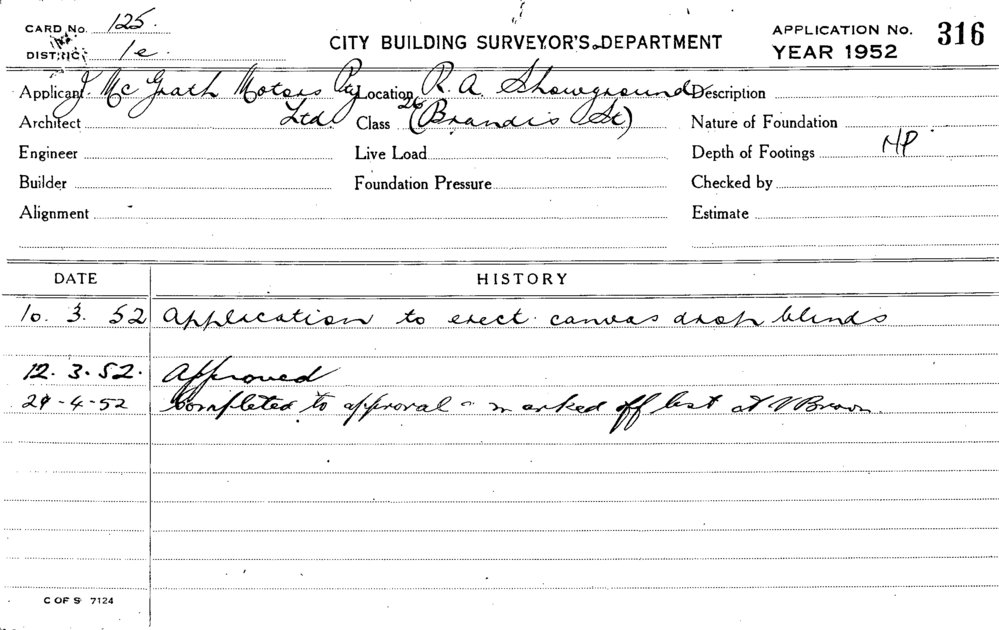 CARD No. 125.
DISTRICT 1e.
CITY BUILDING SURVEYOR'S DEPARTMENT
APPLICATION No. 316
YEAR 1952
Applicant J. Mc Grath Motors Pty Location R. A. Showground Description
Architect Ltd. Class 26 (Brandis St) Nature of Foundation
Engineer Live Load Depth of Footings
Builder Foundation Pressure Checked by
Alignment Estimate
DATE HISTORY
10. 3. 52 Application to erect canvas drop blinds
12. 3. 52. Approved
29-4-52 Completed to approval marked off list
C OF S 7124